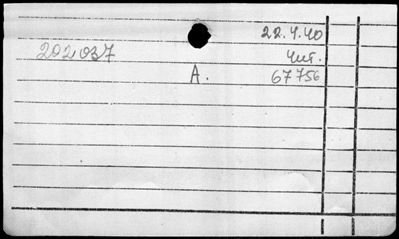 22.4.40
202037 Чит.
А. 67756